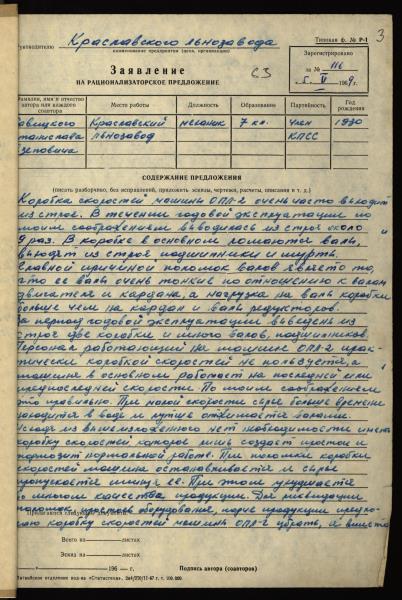 3
Типовая ф. № Р-1
Руководителю Краславского льнозавода
наименование предприятия (цеха, организации)
Заявление
НА РАЦИОНАЛИЗАТОРСКОЕ ПРЕДЛОЖЕНИЕ
Зарегистрировано
за № 116
196 9 г.
Фамилия, имя и отчество автора или каждого соавтора
Место работы
Должность
Образование
Партийность
Год рождения
Краславский механик 7 кл. член 1930
льнозавод КПСС
СОДЕРЖАНИЕ ПРЕДЛОЖЕНИЯ
(писать разборчиво, без исправлений, приложить эскизы, чертежи, расчеты, описания и т. д.)
Коробка скоростей машины ОПЛ-2 очень часто выходит
из строя. В течении годовой эксплуатации по
моим соображениям выводилась из строя около
9 раз. В коробке в основном ломаются валы,
выходят из строя подшипники и муфты.
Главной причиной поломок валов является то,
что ее валы очень тонкие по отношению к валам
двигателя и кардана, а нагрузка на валы коробки
больше чем на кардан и валы редукторов.
За период годовой эксплуатации выведены из
строя две коробки и много валов, подшипников.
Персонал работающий на машине ОПЛ-2 прак-
тически коробкой скоростей не пользуется, а
машина в основном работает на последней или
предпоследней скорости. По моим соображениям
это правильно. При малой скорости сырье больше времени
находится в воде и лучше отжимается валами.
Исходя из вышеизложенного нет необходимости иметь
коробку скоростей которая лишь создает простои и
тормозит нормальной работе. При поломки коробки
скоростей машина останавливается и сырье
пропускается минуя ее. При этом ухудшается
качества продукции. Для ликвидации
поломок, простоев оборудования, порче продукции предла-
гаю коробку скоростей машины ОПЛ-2 убрать, а вместо
Прилагаются следующие документы
Всего на листах
Эскиз на листах
196 г.
Подпись автора (соавторов)